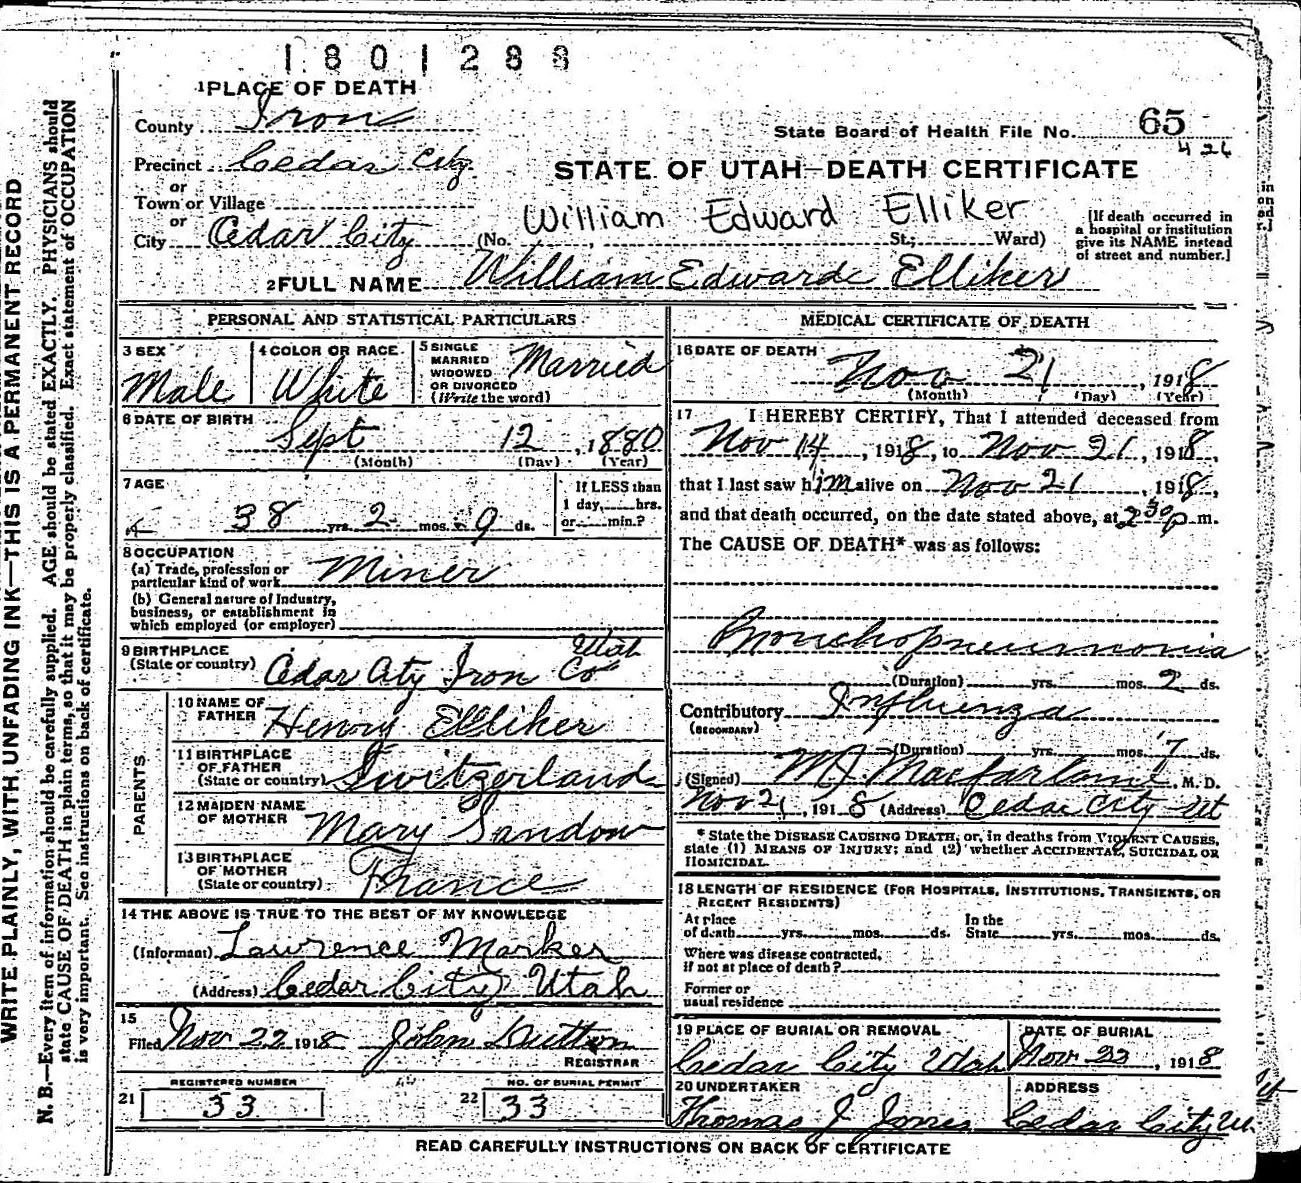 1801288
1 PLACE OF DEATH
County Iron
State Board of Health File No. 65
426
Precinct Cedar City
STATE OF UTAH—DEATH CERTIFICATE
or
Town or Village
or
City Cedar City (No. William Edward Elliker St.; Ward)
[If death occurred in
a hospital or institution
give its NAME instead
of street and number.]
2 FULL NAME William Edward Elliker
PERSONAL AND STATISTICAL PARTICULARS
3 SEX
Male
4 COLOR OR RACE
White
5 SINGLE
MARRIED
WIDOWED
OR DIVORCED
(Write the word)
Married
6 DATE OF BIRTH
Sept 12, 1880
(Month) (Day) (Year)
7 AGE
38 yrs. 2 mos. 9 ds.
If LESS than
1 day, hrs.
or min.?
8 OCCUPATION
(a) Trade, profession or
particular kind of work Miner
(b) General nature of Industry,
business, or establishment in
which employed (or employer)
9 BIRTHPLACE
(State or country) Cedar City Iron Co Utah
PARENTS
10 NAME OF
FATHER Henry Elliker
11 BIRTHPLACE
OF FATHER
(State or country) Switzerland
12 MAIDEN NAME
OF MOTHER Mary Sandow
13 BIRTHPLACE
OF MOTHER
(State or country) France
14 THE ABOVE IS TRUE TO THE BEST OF MY KNOWLEDGE
(Informant) Lawrence Marker
(Address) Cedar City Utah
15
Filed Nov 22 1918 John
REGISTRAR
REGISTERED NUMBER
21 53
NO. OF BURIAL PERMIT
22 33
MEDICAL CERTIFICATE OF DEATH
16 DATE OF DEATH
Nov 21, 1918
(Month) (Day) (Year)
17 I HEREBY CERTIFY, That I attended deceased from
Nov 14, 1918, to Nov 21, 1918,
that I last saw him alive on Nov 21, 1918,
and that death occurred, on the date stated above, at 2 30 p m.
The CAUSE OF DEATH* was as follows:
Bronchopneumonia
(Duration) yrs. mos. 2 ds.
Contributory Influenza
(SECONDARY)
(Duration) yrs. mos. 7 ds.
(Signed) M J Macfarlane, M. D.
Nov 21, 1918 (Address) Cedar City Ut
* State the DISEASE CAUSING DEATH, or, in deaths from VIOLENT CAUSES,
state (1) MEANS OF INJURY; and (2) whether ACCIDENTAL, SUICIDAL OR
HOMICIDAL.
18 LENGTH OF RESIDENCE (FOR HOSPITALS, INSTITUTIONS, TRANSIENTS, OR
RECENT RESIDENTS)
At place
of death yrs. mos. ds.
In the
State yrs. mos. ds.
Where was disease contracted,
if not at place of death?
Former or
usual residence
19 PLACE OF BURIAL OR REMOVAL
Cedar City Utah
DATE OF BURIAL
Nov 23, 1918
20 UNDERTAKER
Thomas J Jones
ADDRESS
Cedar City Ut
READ CAREFULLY INSTRUCTIONS ON BACK OF CERTIFICATE
WRITE PLAINLY, WITH UNFADING INK—THIS IS A PERMANENT RECORD
N. B.—Every item of information should be carefully supplied. AGE should be stated EXACTLY. PHYSICIANS should
state CAUSE OF DEATH in plain terms, so that it may be properly classified. Exact statement of OCCUPATION
is very important. See instructions on back of certificate.